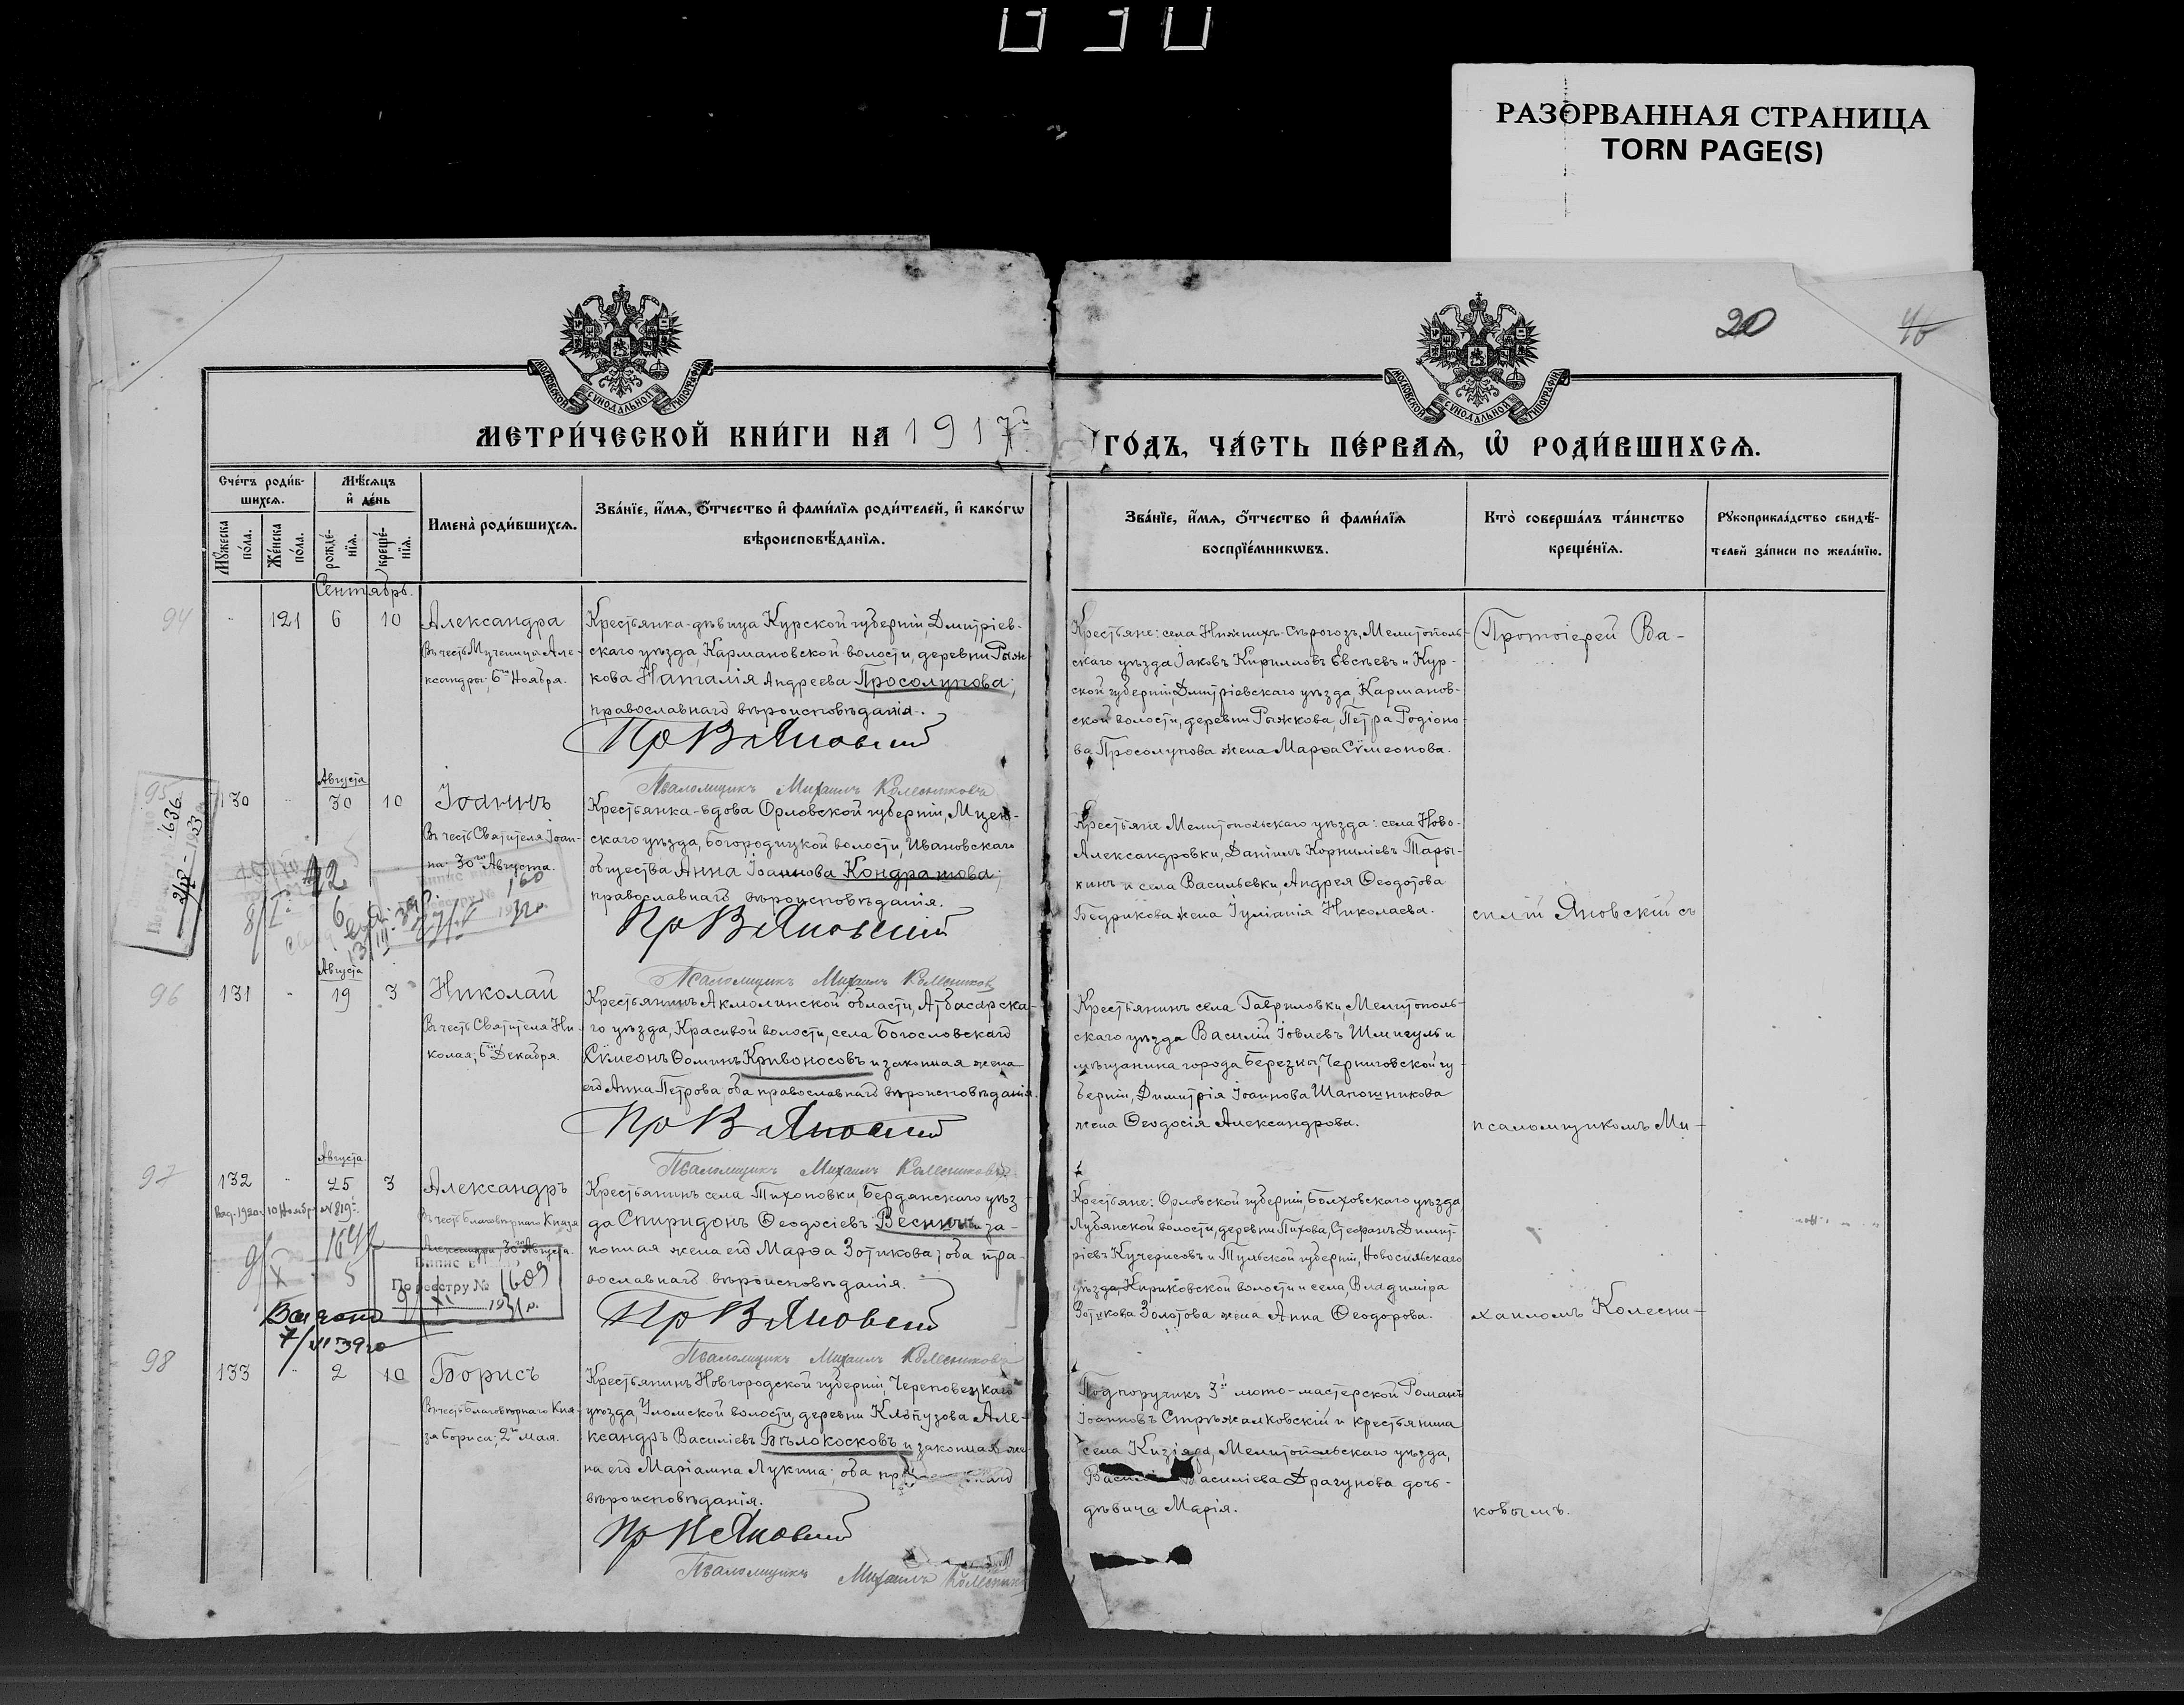 РАЗОРВАННАЯ СТРАНИЦА
TORN PAGE(S)
20
МОСКОВСКОЙ СѴНОДАЛЬНОЙ ТИПОГРАФІИ
МОСКОВСКОЙ СѴНОДАЛЬНОЙ ТИПОГРАФІИ
МЕТРИ́ЧЕСКОЙ КНИ́ГИ НА 1917й
ГО́ДЪ, ЧА́СТЬ ПЕ́РВАѦ, Ѡ РОДИ́ВШИХСѦ.
Сче́тъ роди́в-
шихсѧ.
Мѣ́сѧцъ
и де́нь
Мꙋ́жеска
по́ла.
Же́нска
по́ла.
рожде́-
нїѧ.
креще́-
нїѧ.
Имена̀ роди́вшихсѧ.
Зва́нїе, и́мѧ, ѻ҆́тчество и фами́лїѧ роди́телей, и како́гѡ
вѣроисповѣ́данїѧ.
Зва́нїе, и́мѧ, ѻ҆́тчество и фами́лїѧ
воспрїе́мникѡвъ.
Кто̀ соверша́лъ та́инство
креще́нїѧ.
Рꙋкоприкла́дство свидѣ́-
телей за́писи по жела́нїю.
Сентябрь.
94
121
6
10
Александра
Въ честь Мученицы Але-
ксандры; 6го Ноября.
Крестьянка-дѣвица Курской губерніи, Дмитріев-
скаго уѣзда, Кармановской волости, деревни Рыж-
кова Наталія Андреева Просолупова;
православнаго вѣроисповѣданія.
Пр В Яновский
Псаломщикъ Михаилъ Колесниковъ
Крестьяне: села Нижнихъ-Сѣрогозъ, Мелитополь-
скаго уѣзда Іаковъ Кирилловъ Евсѣевъ и Кур-
ской губерніи, Дмитріевскаго уѣзда, Карманов-
ской волости, деревни Рыжкова, Петра Родіоно-
ва Просолупова жена Марѳа Сѵмеонова.
Протоіерей Ва-
95
Августа
130
30
10
Іоаннъ
Въ честь Святителя Іоан-
на 30го Августа.
Крестьянка-вдова Орловской губерніи, Мцен-
скаго уѣзда, Богородицкой волости, Ивановскаго
общества Анна Іоаннова Кондратова;
православнаго вѣроисповѣданія.
Пр В Яновский
Псаломщикъ Михаилъ Колесников
Крестьяне Мелитопольскаго уѣзда: села Ново-
Александровки, Даніилъ Корниліевъ Тары-
кинъ и села Васильевки, Андрея Ѳеодотова
Бедрикова жена Іуліанія Николаева.
силій Яновскій съ
636
160
96
Августа
131
19
3
Николай
Въ честь Святителя Ни-
колая, 6го Декабря.
Крестьянинъ Акмолинской области, Атбасарска-
го уѣзда, Красивой волости, села Богословскаго
Сѵмеонъ Ѳоминъ Кривоносовъ и законная жена
его Анна Петрова; оба православнаго вѣроисповѣданія.
Пр В Яновский
Псаломщикъ Михаилъ Колесниковъ
Крестьянинъ села Гавриловки, Мелитополь-
скаго уѣзда Василій Іовлевъ Шмигуль и
мѣщанина города Березны, Черниговской гу-
берніи, Димитрія Іоаннова Шапошникова
жена Ѳеодосія Александрова.
псаломщикомъ Ми-
97
Августа
132
25
3
Александръ
Въ честь Благовѣрнаго Князя
Александра, 30го Августа.
Крестьянинъ села Тихоновки, Бердянскаго уѣз-
да Спиридонъ Ѳеодосіевъ Веснинъ и за-
конная жена его Марѳа Зотикова; оба пра-
вославнаго вѣроисповѣданія.
Пр В Яновский
Псаломщикъ Михаилъ Колесниковъ
Крестьяне: Орловской губерніи, Болховскаго уѣзда
Лубянской волости, деревни Пихова, Стефанъ Димит-
ріевъ Кучерисовъ и Тульской губерніи, Новосильскаго
уѣзда, Кириковской волости и села, Владиміра
Зотикова Золотова жена Анна Ѳеодорова.
хаиломъ Колесни-
По реестру № 1609
98
133
2
10
Борисъ
Въ честь Благовѣрнаго Кня-
зя Бориса; 2го Мая.
Крестьянинъ Новгородской губерніи, Череповецкаго
уѣзда, Уломской волости, деревни Клопузова Але-
ксандръ Василіевъ Бѣлокосковъ и законная же-
на его Маріамна Лукина; оба
вѣроисповѣданія.
Пр В Яновский
Псаломщикъ Михаилъ
Подпоручикъ 3й мото-мастерской Романъ
Іоанновъ Стрѣжалковскій и крестьянина
села Кизіяра, Мелитопольскаго уѣзда,
Василіева Драгунова дочь-
дѣвица Марія.
ковымъ.